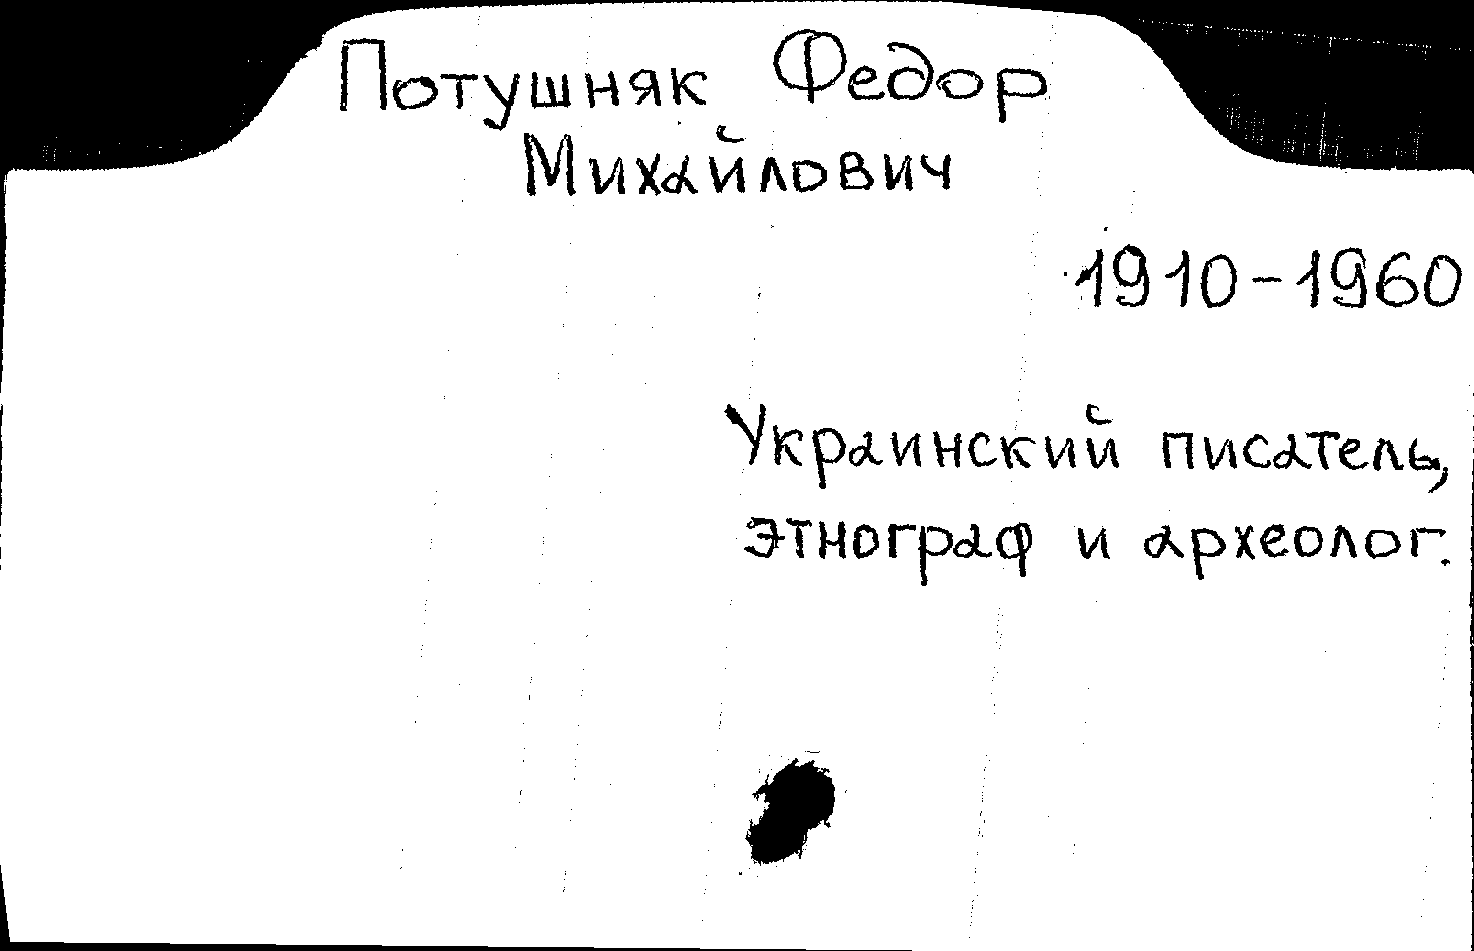 Потушняк Федор
Михайлович
1910-1960
Украинский писатель,
этнограф и археолог.